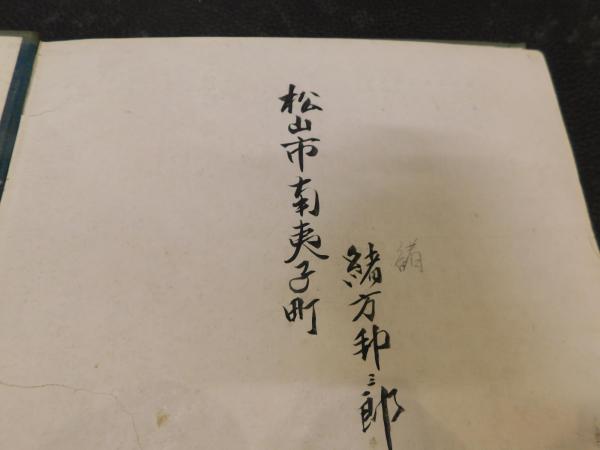 松山市南夷子町
緒方卯三郎
緒